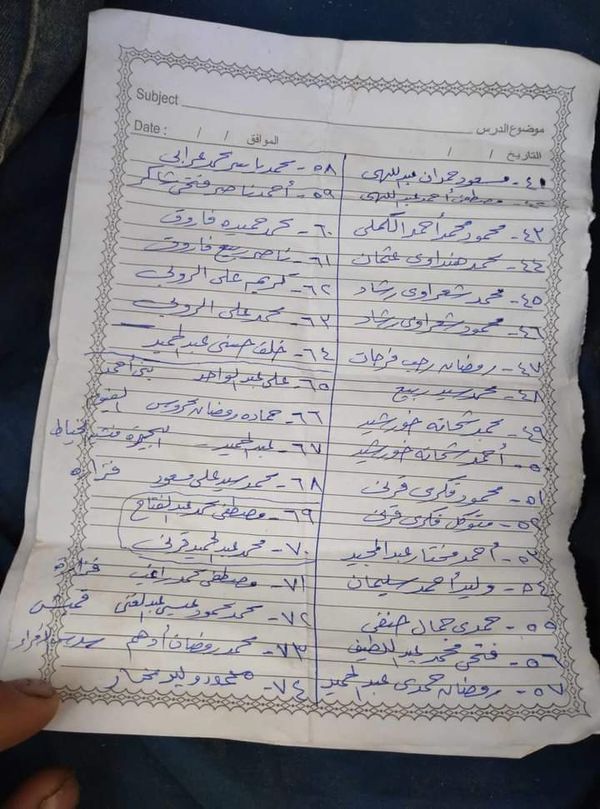 Subject
موضوع الدرس
Date : / /
الموافق / /
التاريخ
٤١- مسعود حمدان عبد النبى
٤٢- مصطفى أحمد عبد النبى
٤٣- محمود محمد أحمد
٤٤- محمد هنداوى عثمان
٤٥- محمد شعراوى رشاد
٤٦- محمود شعراوى رشاد
٤٧- رمضان رجب فرجات
٤٨- محمد سيد ربيع
٤٩- محمد شحاته خورشيد
٥٠- أحمد شحاته خورشيد
٥١- محمود فكرى قرنى
٥٢- متوكل فكرى قرنى
٥٣- أحمد مختار عبد المجيد
٥٤- وليد أحمد سليمان
٥٥- حمدى جمال حنفى
٥٦- فتحى محمد عبد اللطيف
٥٧- رمضان حمدى عبد الحميد
٥٨- محمد ياسر محمد عرابى
٥٩- أحمد ناصر فتحى شاكر
٦٠- محمد حميده فاروق
٦١- ناصر ربيع فاروق
٦٢- كريم على الروبى
٦٣- محمد على الروبى
٦٤- خلف حسنى عبد الحميد
٦٥- على عبد الواحد
٦٦- حماده رمضان محروس الفيوم
٦٧- عبد الحميد الجيزة
٦٨- محمد سيد على مسعود فزارة
٦٩- مصطفى محمد عبد الفتاح
٧٠- محمد عبد الحميد قرنى
٧١- مصطفى محمد راغب
٧٢- محمد محمود عيسى عبد الغنى قمبش
٧٣- محمد رمضان أدهم
٧٤- محمود وليد مختار